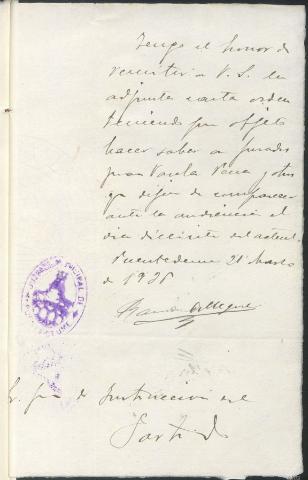 Tengo el honor de
remitir a V. S. la
adjunta carta orden
teniendo por objeto
hacer saber a Jurados
Juan Varela Pena y otros
que dejen de comparecer
ante la audiencia el
dia diecisiete del actual.
Puentedeume 21 Marzo
de 1926
Ramon
Sr. Juez de Instruccion del
Partido